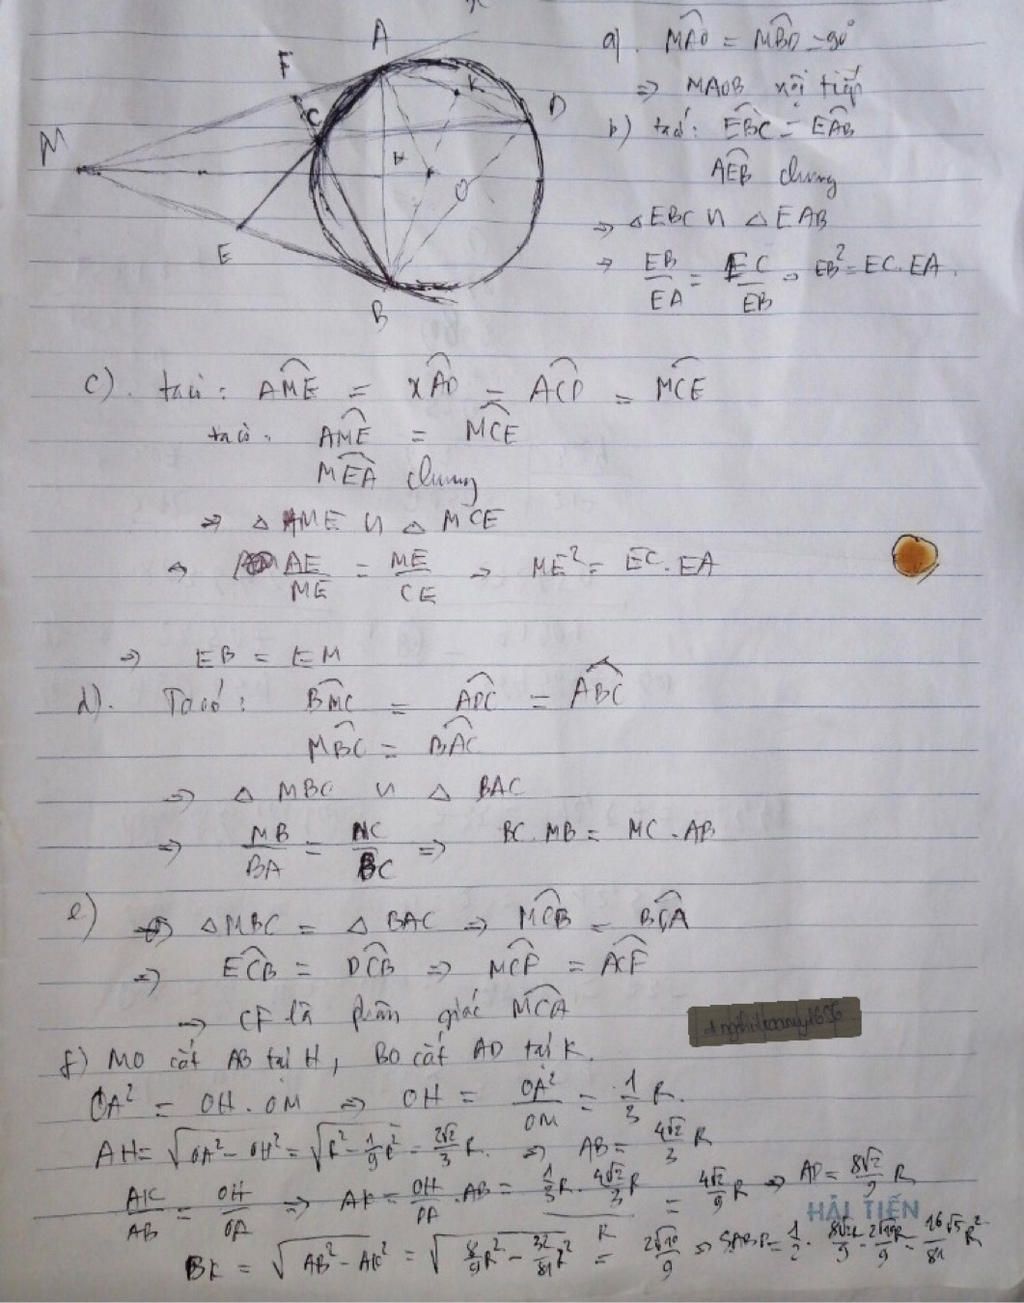 A
F
C
K
D
M
H
O
E
B
a). MÂO = MBO = 90°
=> MAOB nội tiếp
b) ta có: EBC = EAB
AEB chung
=> △EBC ∽ △EAB
=> EB/EA = EC/EB => EB² = EC.EA.
c). ta có: AME = xAD = ACD = MCE
ta có: AME = MCE
MEA chung
=> △ AME ∽ △ MCE
=> AE/ME = ME/CE => ME² = EC.EA
=> EB = EM
d). Ta có: BMC = ADC = ABC
MBC = BAC
=> △ MBC ∽ △ BAC
=> MB/BA = MC/BC => BC.MB = MC.AB
e) => △MBC = △BAC => MCB = BCA
=> ECB = DCB => MCF = ACF
=> CF là phân giác MCA
f) MO cắt AB tại H, BO cắt AD tại K.
OA² = OH.OM => OH = OA²/OM = 1/3 R.
AH = √(OA² - OH²) = √(R² - 1/9 R²) = 2√2/3 R. => AB = 4√2/3 R
AK/AB = OH/OA => AK = OH/OA . AB = (1/3 R . 4√2/3 R)/R = 4√2/9 R => AD = 8√2/9 R
HẢI TIẾN